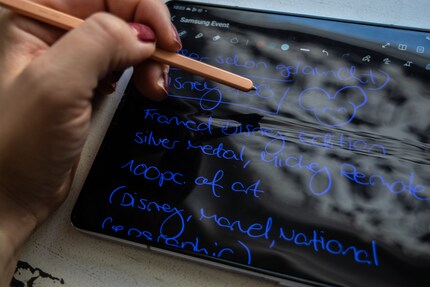 Samsung Event
salon
Disney
Framed Disney Edition
silver metal, Micky Remote
100pc. of art
(Disney, Marvel, National
Geographic)